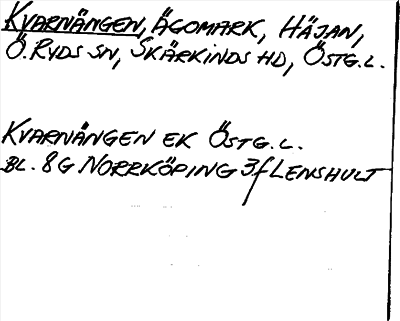 KVARNÄNGEN, ÄGOMARK, HÄJAN,
Ö. RYDS SN, SKÄRKINDS HD, ÖSTG. L.
KVARNÄNGEN EK ÖSTG. L.
BL. 8G NORRKÖPING 3f LENSHULT